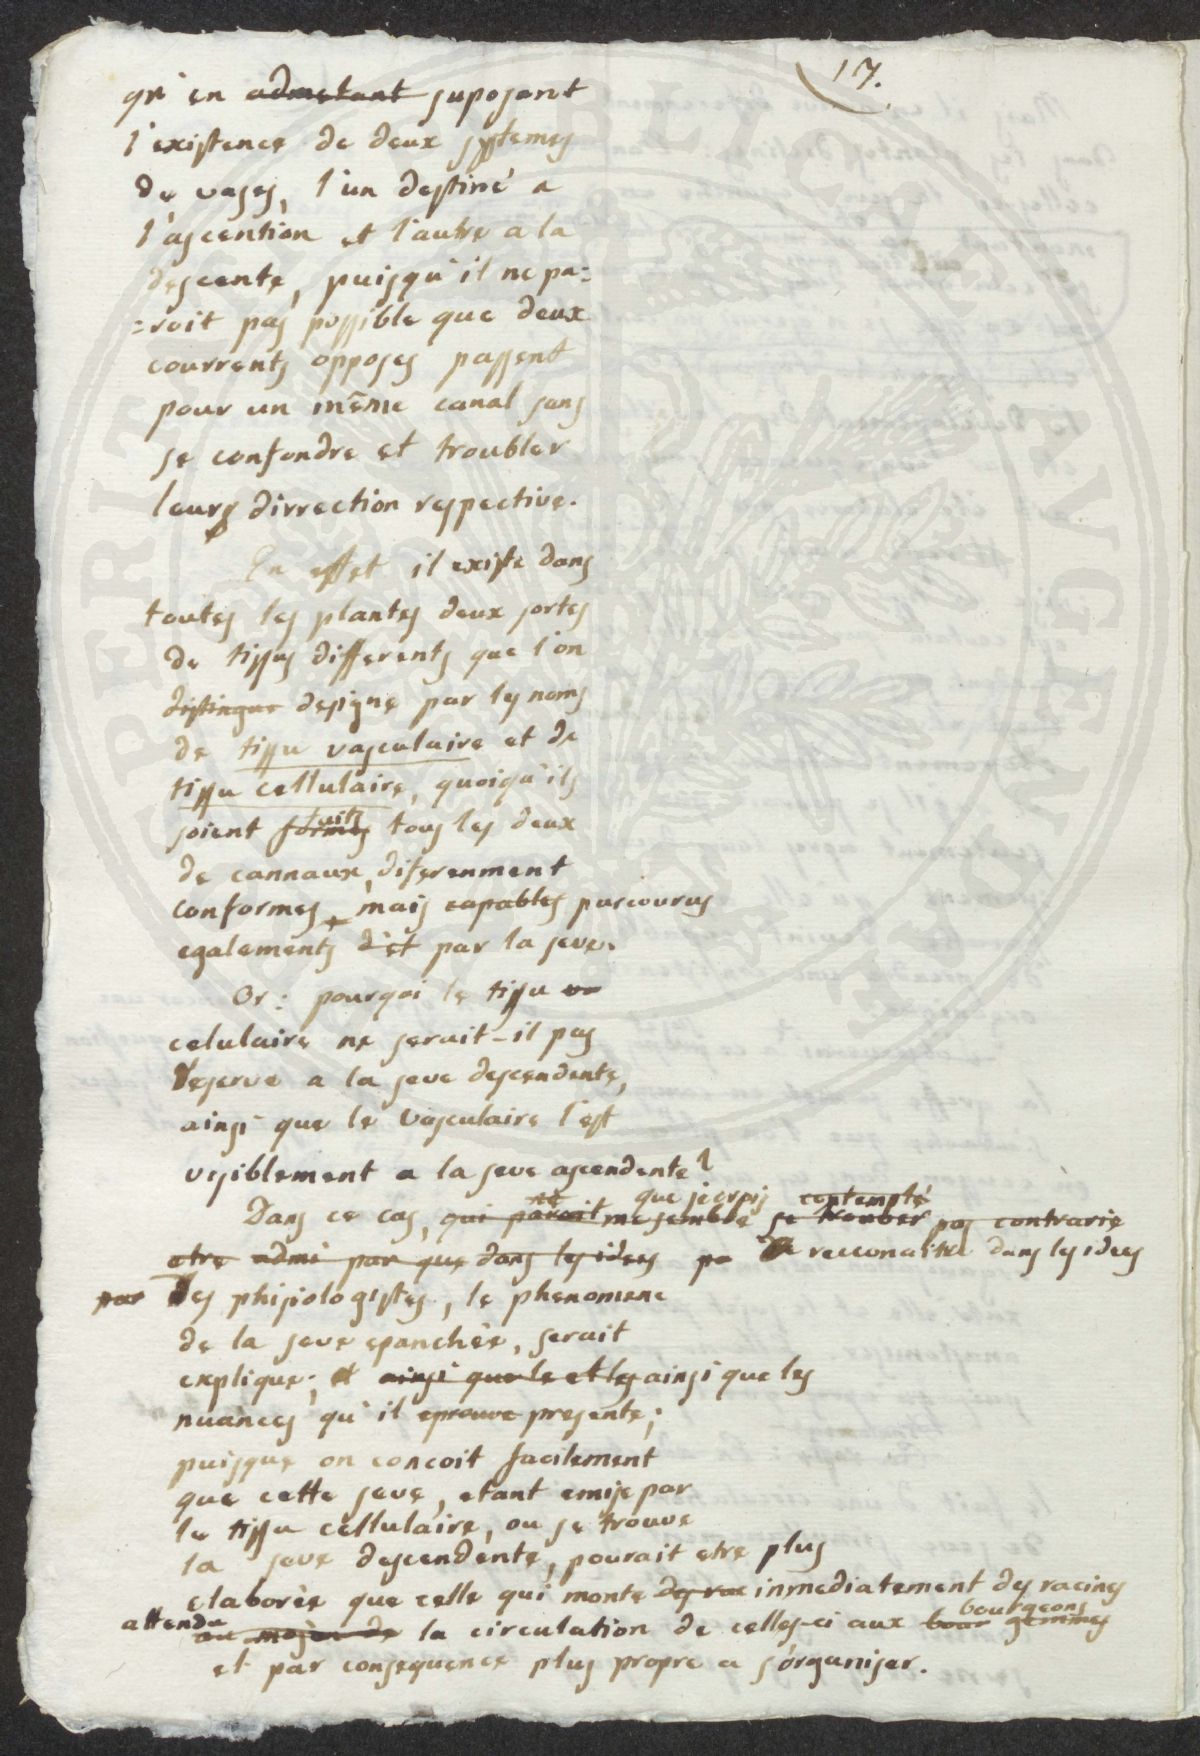 17.
qu'en admetant suposant
l'existence de deux systemes
de vases, l'un destiné a
l'ascention et l'autre a la
descente, puisqu'il ne pa=
=roit pas possible que deux
courrents opposes passent
pour un même canal sans
se confondre et troubler
leurs dirrection respective.
En effet il existe dans
toutes les plantes deux sortes
de tissus differents que l'on
distingue designe par les noms
de tissu vasculaire et de
tissu cellulaire, quoiqu'ils
soient formes faits tous les deux
de cannaux, diferenment
conformes, mais capables parcourus
egalements d'et par la seve.
Or: pourqoi le tissu va
celulaire ne serait-il pas
reserve a la seve descendente,
ainsi que le vasculaire l'est
visiblement a la seve ascendente?
ne que je crois contempté
Dans ce cas, qui paroit me semble se trouver pas contrarie
etre admi par que dans les idees pa reconnaitre dans les idees
par des phisiologistes, le phenomene
de la seve epanchée, serait
explique; et ainsi que le et les ainsi que les
nuances qu'il eprouve presente;
puisque on concoit facilement
que cette seve, etant emise par
le tissu cellulaire, ou se trouve
la seve descendente, pourait etre plus
elaborèe que celle qui monte des rac inmediatement des racines
bourgeons
attendu au moyen de la circulation de celles-ci aux bour gemmes
et par consequence plus propre a s'organiser.